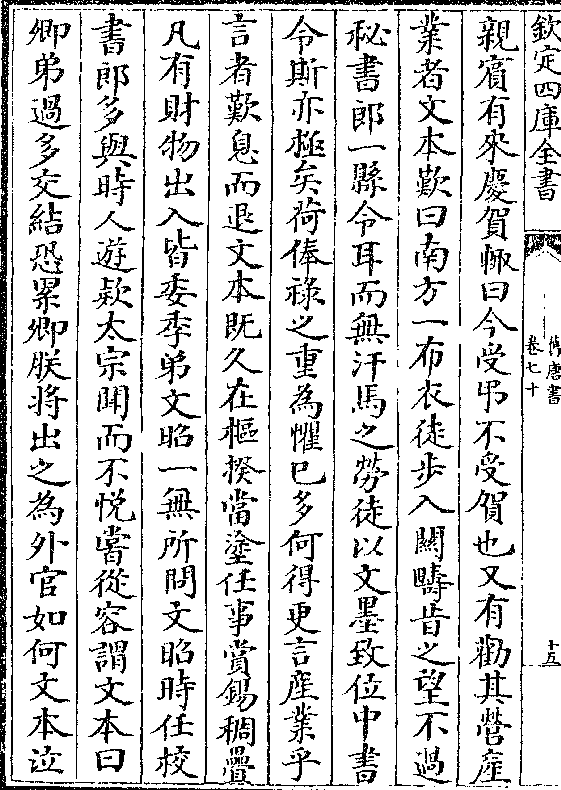 欽定四庫全書
舊唐書
卷七十
十五
親賓有來慶賀輙曰今受弔不受賀也又有勸其營産
業者文本歎曰南方一布衣徒步入關疇昔之望不過
秘書郎一縣令耳而無汗馬之勞徒以文墨致位中書
令斯亦極矣荷俸祿之重為懼已多何得更言産業乎
言者歎息而退文本既久在樞揆當塗任事賞錫稠疊
凡有財物出入皆委季弟文昭一無所問文昭時任校
書郎多與時人遊款太宗聞而不悅嘗從容謂文本曰
卿弟過多交結恐累卿朕將出之為外官如何文本泣